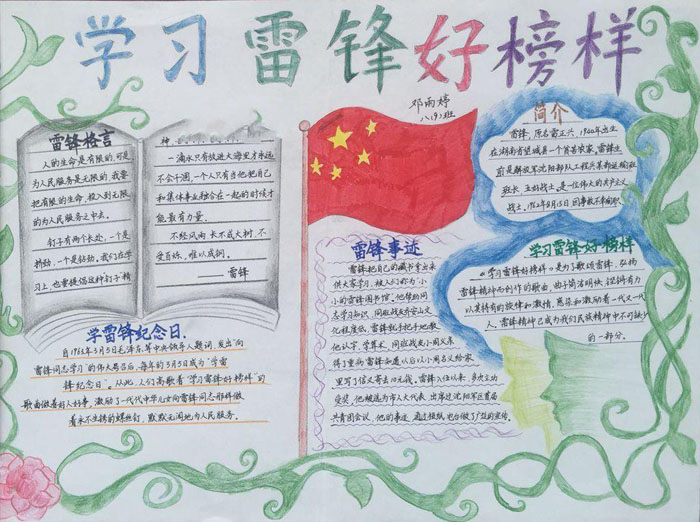 学习雷锋好榜样
邓雨婷
八(9)班
雷锋格言
人的生命是有限的,可是
为人民服务是无限的,我要
把有限的生命,投入到无限
的为人民服务之中去。
钉子有两个长处,一个是
挤劲,一个是钻劲。我们在学
习上,也要提倡这种钉子"精
神
一滴水只有放进大海里才永远
不会干涸,一个人只有当他把自己
和集体事业融合在一起的时候才
能最有力量。
不经风雨,长不成大树,不
受百炼,难以成钢。
——雷锋
简介
雷锋,原名雷正兴,1940年出生
在湖南省望城县一个贫苦农家,雷锋生
前是解放军沈阳部队工程兵某部运输班
班长、五好战士,是一位伟大的共产主义
战士。1962年8月15日因事故不幸殉职
雷锋事迹
雷锋把自己的藏书拿出来
供大家学习,被人们称为"小
小的雷锋图书馆"。他帮助同
志学习知识,同班战友乔安山文
化程度低,雷锋就手把手地教
他认字、学算术。同班战友小周父亲
得了重病,雷锋知道以后以小周名义给家
里写了信又寄去10元钱。雷锋入伍以来,多次立功
受奖,他被选为市人大代表,出席过沈阳军区首届
共青团会议,他的事迹,通过报纸、电台做了广泛的宣传。
学习雷锋好榜样
《学习雷锋好榜样》是为了歌颂雷锋,弘扬
雷锋精神而创作的歌曲,曲子简洁明快,铿锵有力
以其特有的旋律和激情,感染和激励着一代又一代
人,雷锋精神已成为我们民族精神中不可缺少
的一部分。
学雷锋纪念日.
自1963年3月5日毛泽东等中央领导人题词,发出"向
雷锋同志学习"的伟大号召后,每年的3月5日成为"学雷
锋纪念日"。从此,人们高歌着"学习雷锋好榜样"的
歌曲做着好人好事,激励了一代代中华儿女向雷锋同志那样做
着永不生锈的螺丝钉,默默无闻地为人民服务。